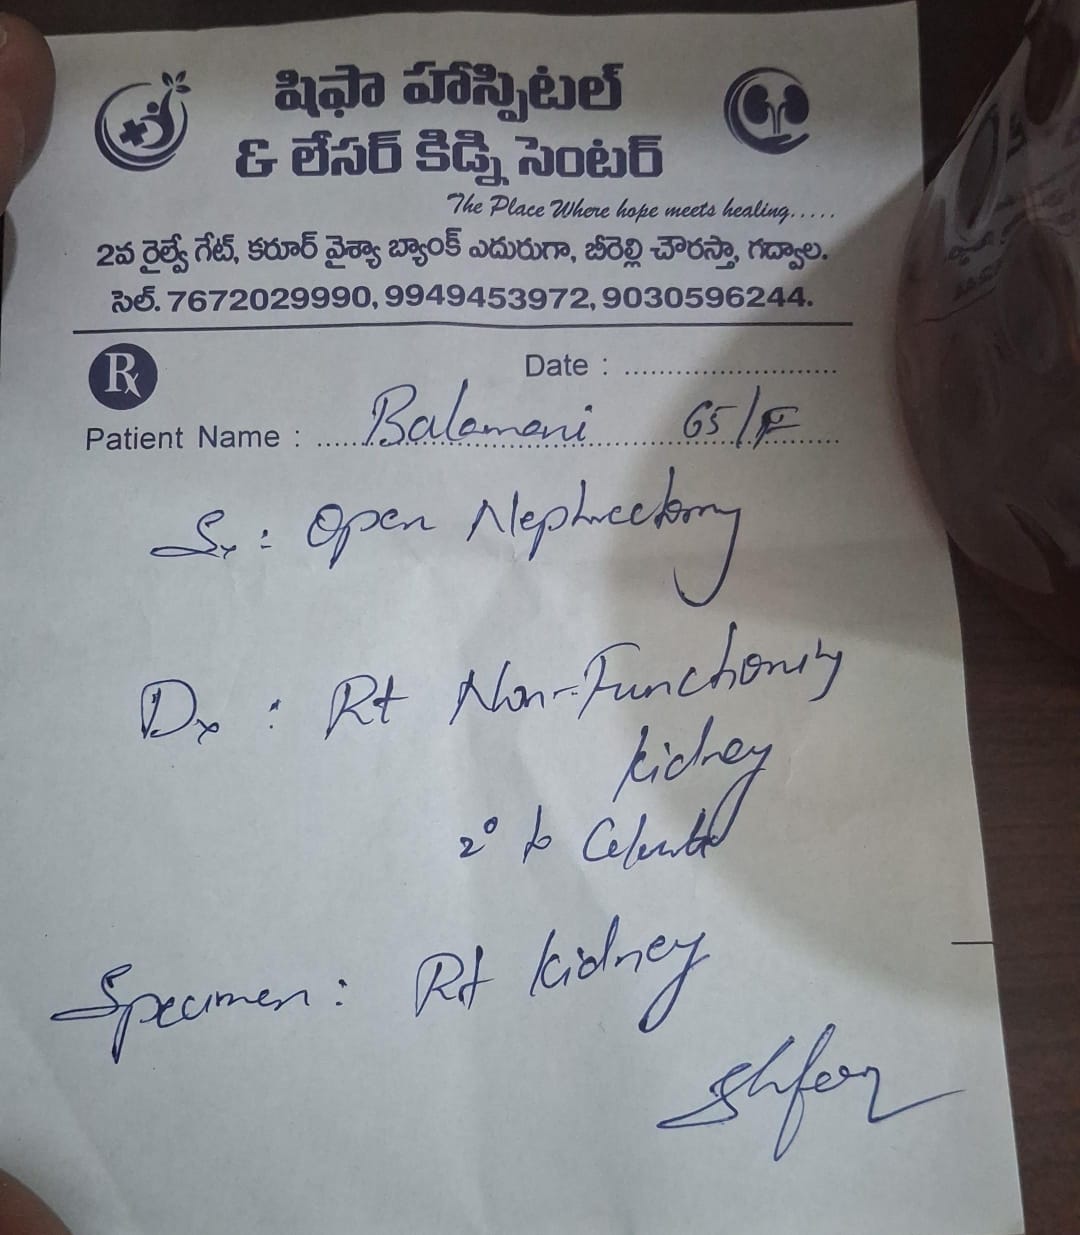 షిఫా హాస్పిటల్
& లేసర్ కిడ్ని సెంటర్
The Place Where hope meets healing.....
2వ రైల్వే గేట్, కరూర్ వైశ్యా బ్యాంక్ ఎదురుగా, బీరెల్లి చౌరస్తా, గద్వాల.
సెల్. 7672029990, 9949453972, 9030596244.
Rx Date : ........................
Patient Name : ..... Balamani 65/F
Sx : Open Nephrectomy
Dx : Rt Non-Functioning
kidney
2° to
Specimen : Rt kidney